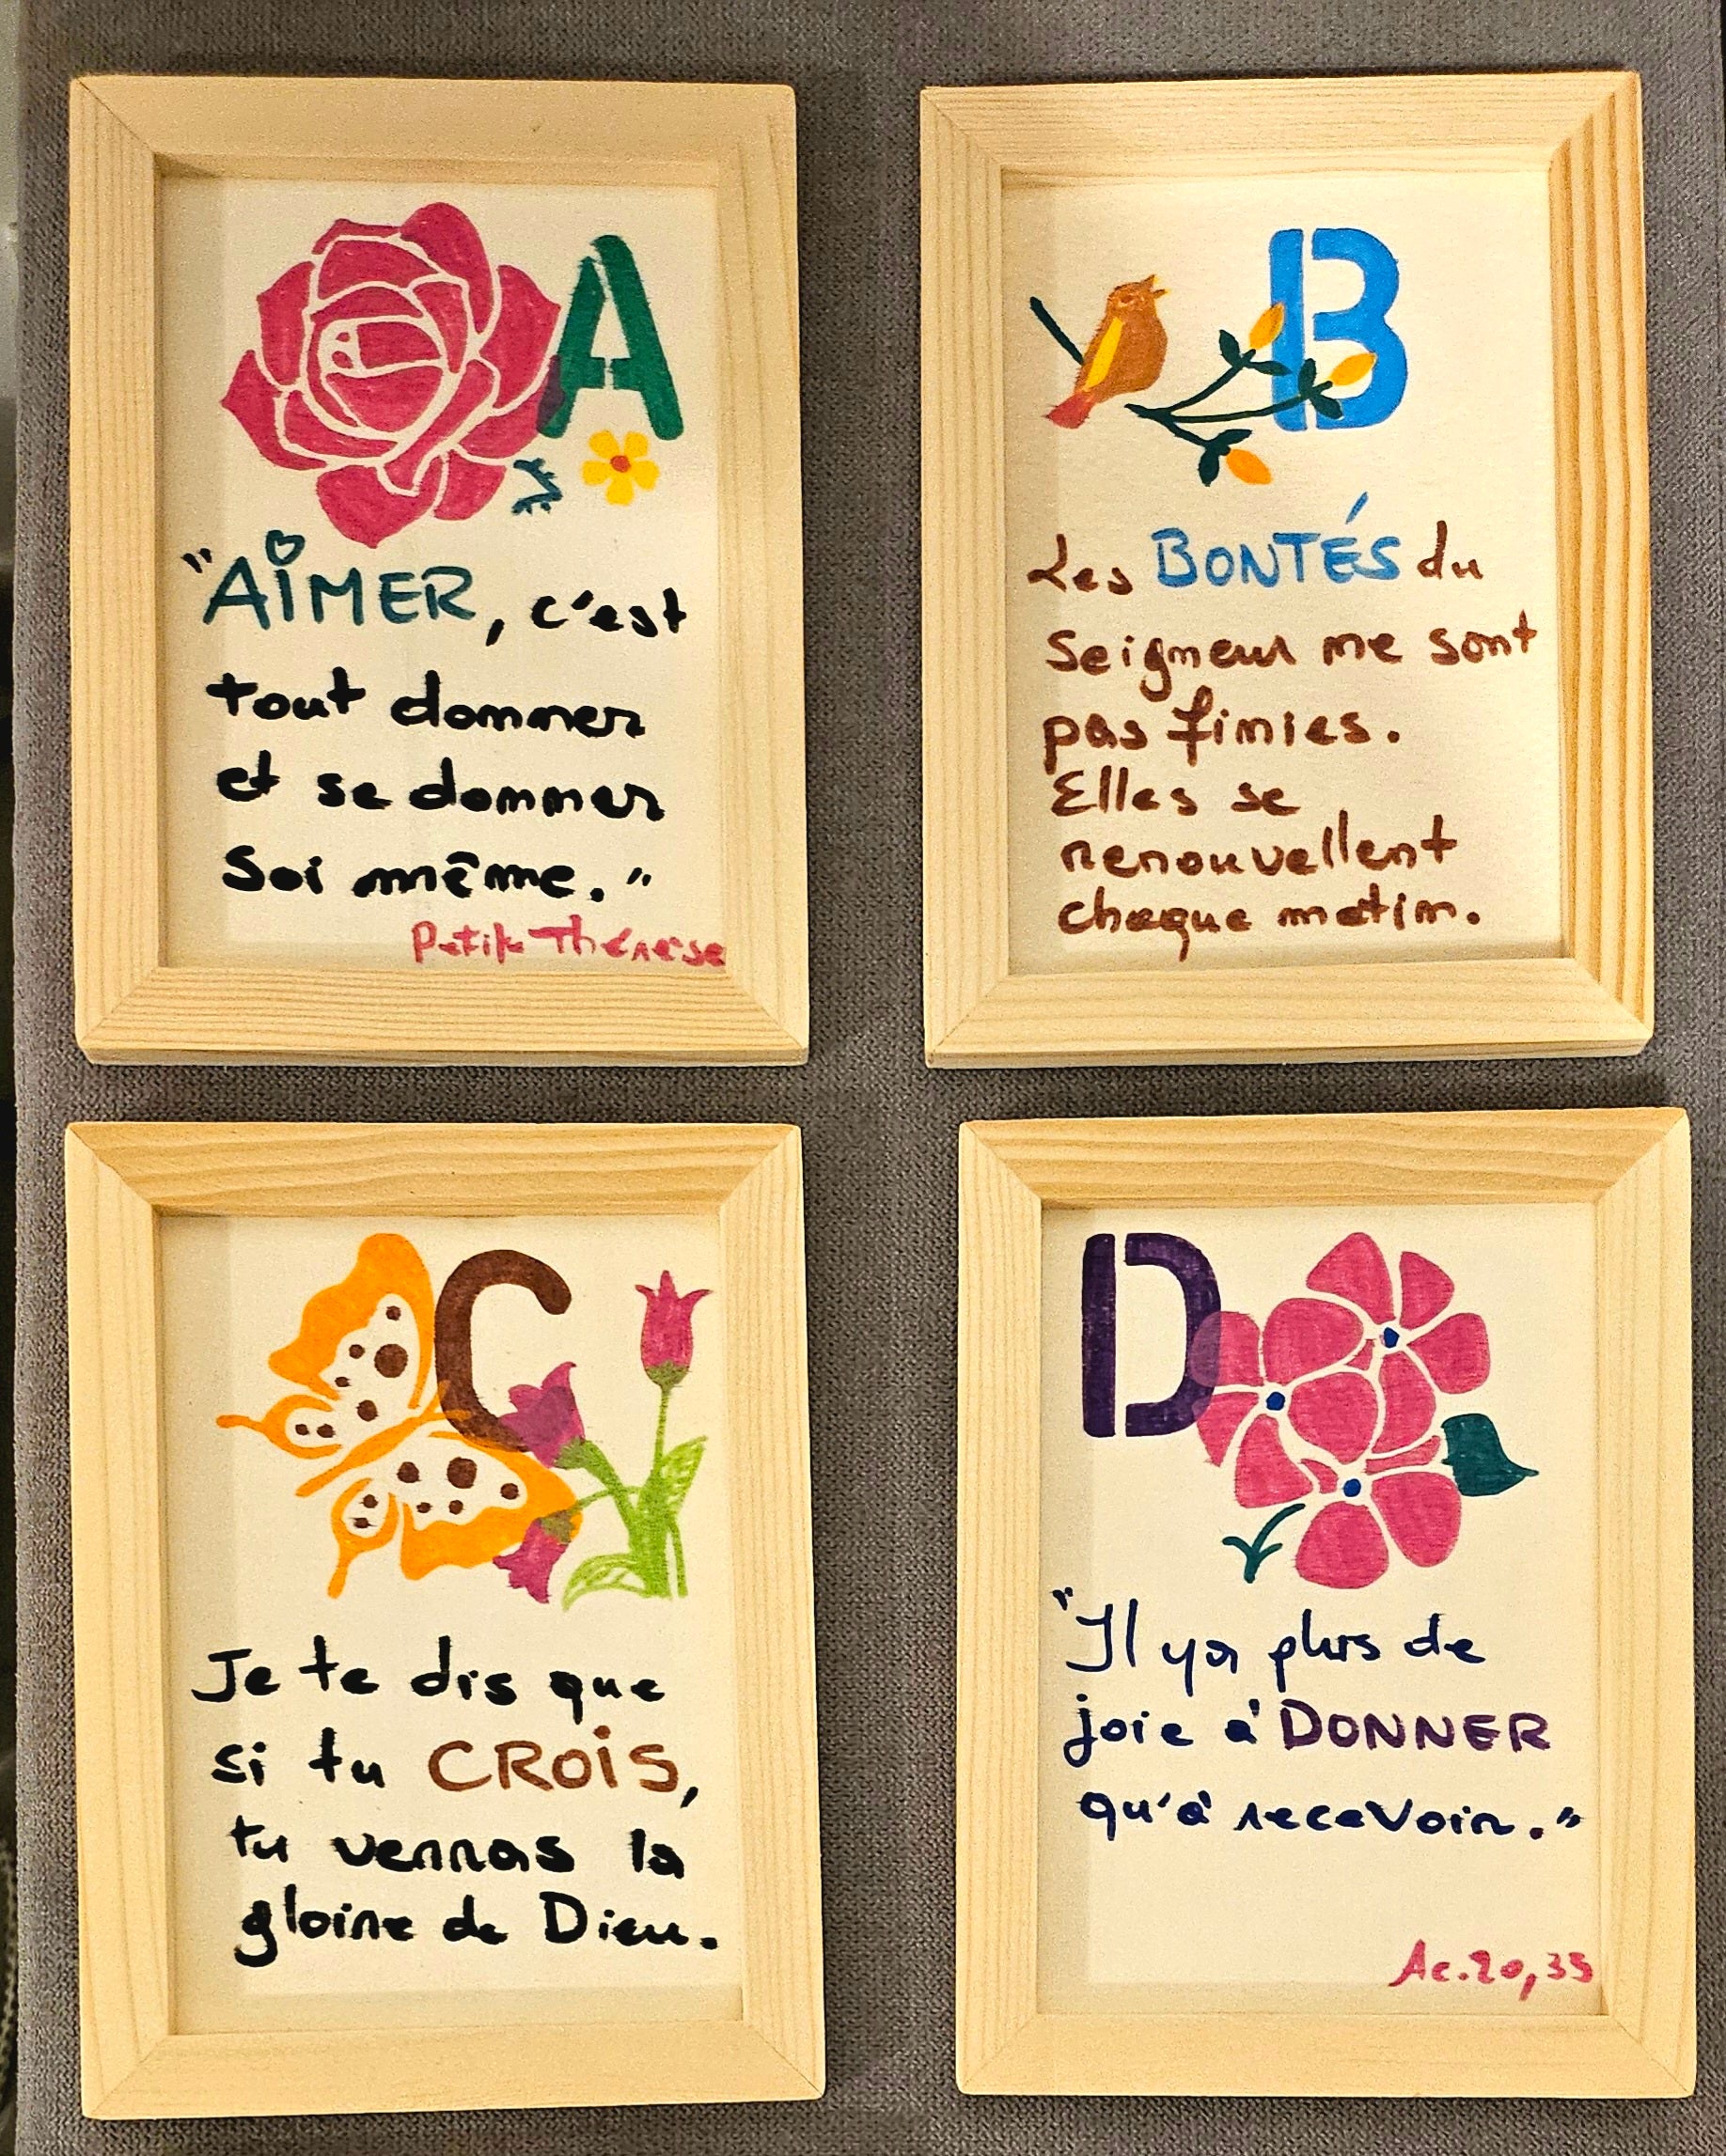 A
"AiMER, c'est
tout donner
et se donner
Soi même."
Petite Thérèse
B
Les BONTÉS du
Seigneur ne sont
pas finies.
Elles se
renouvellent
chaque matin.
C
Je te dis que
si tu CROiS,
tu verras la
gloire de Dieu.
D
"Il y a plus de
joie à DONNER
qu'à recevoir."
Ac.20,35